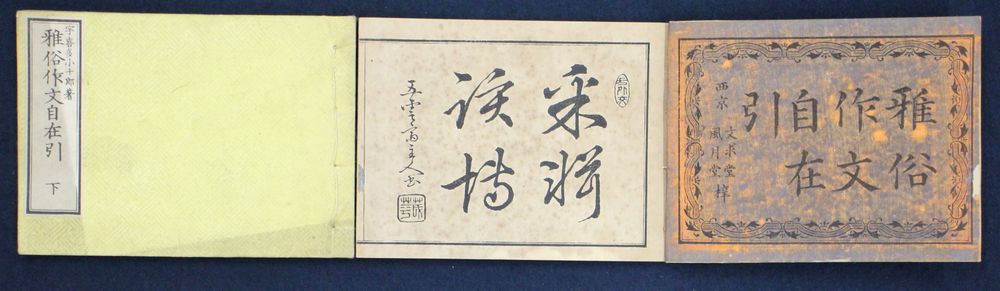 宇喜多小十郎著
雅俗作文自在引 下
采輯
該博
雅俗
作文
自在
引
西京
文求堂
風月堂
梓